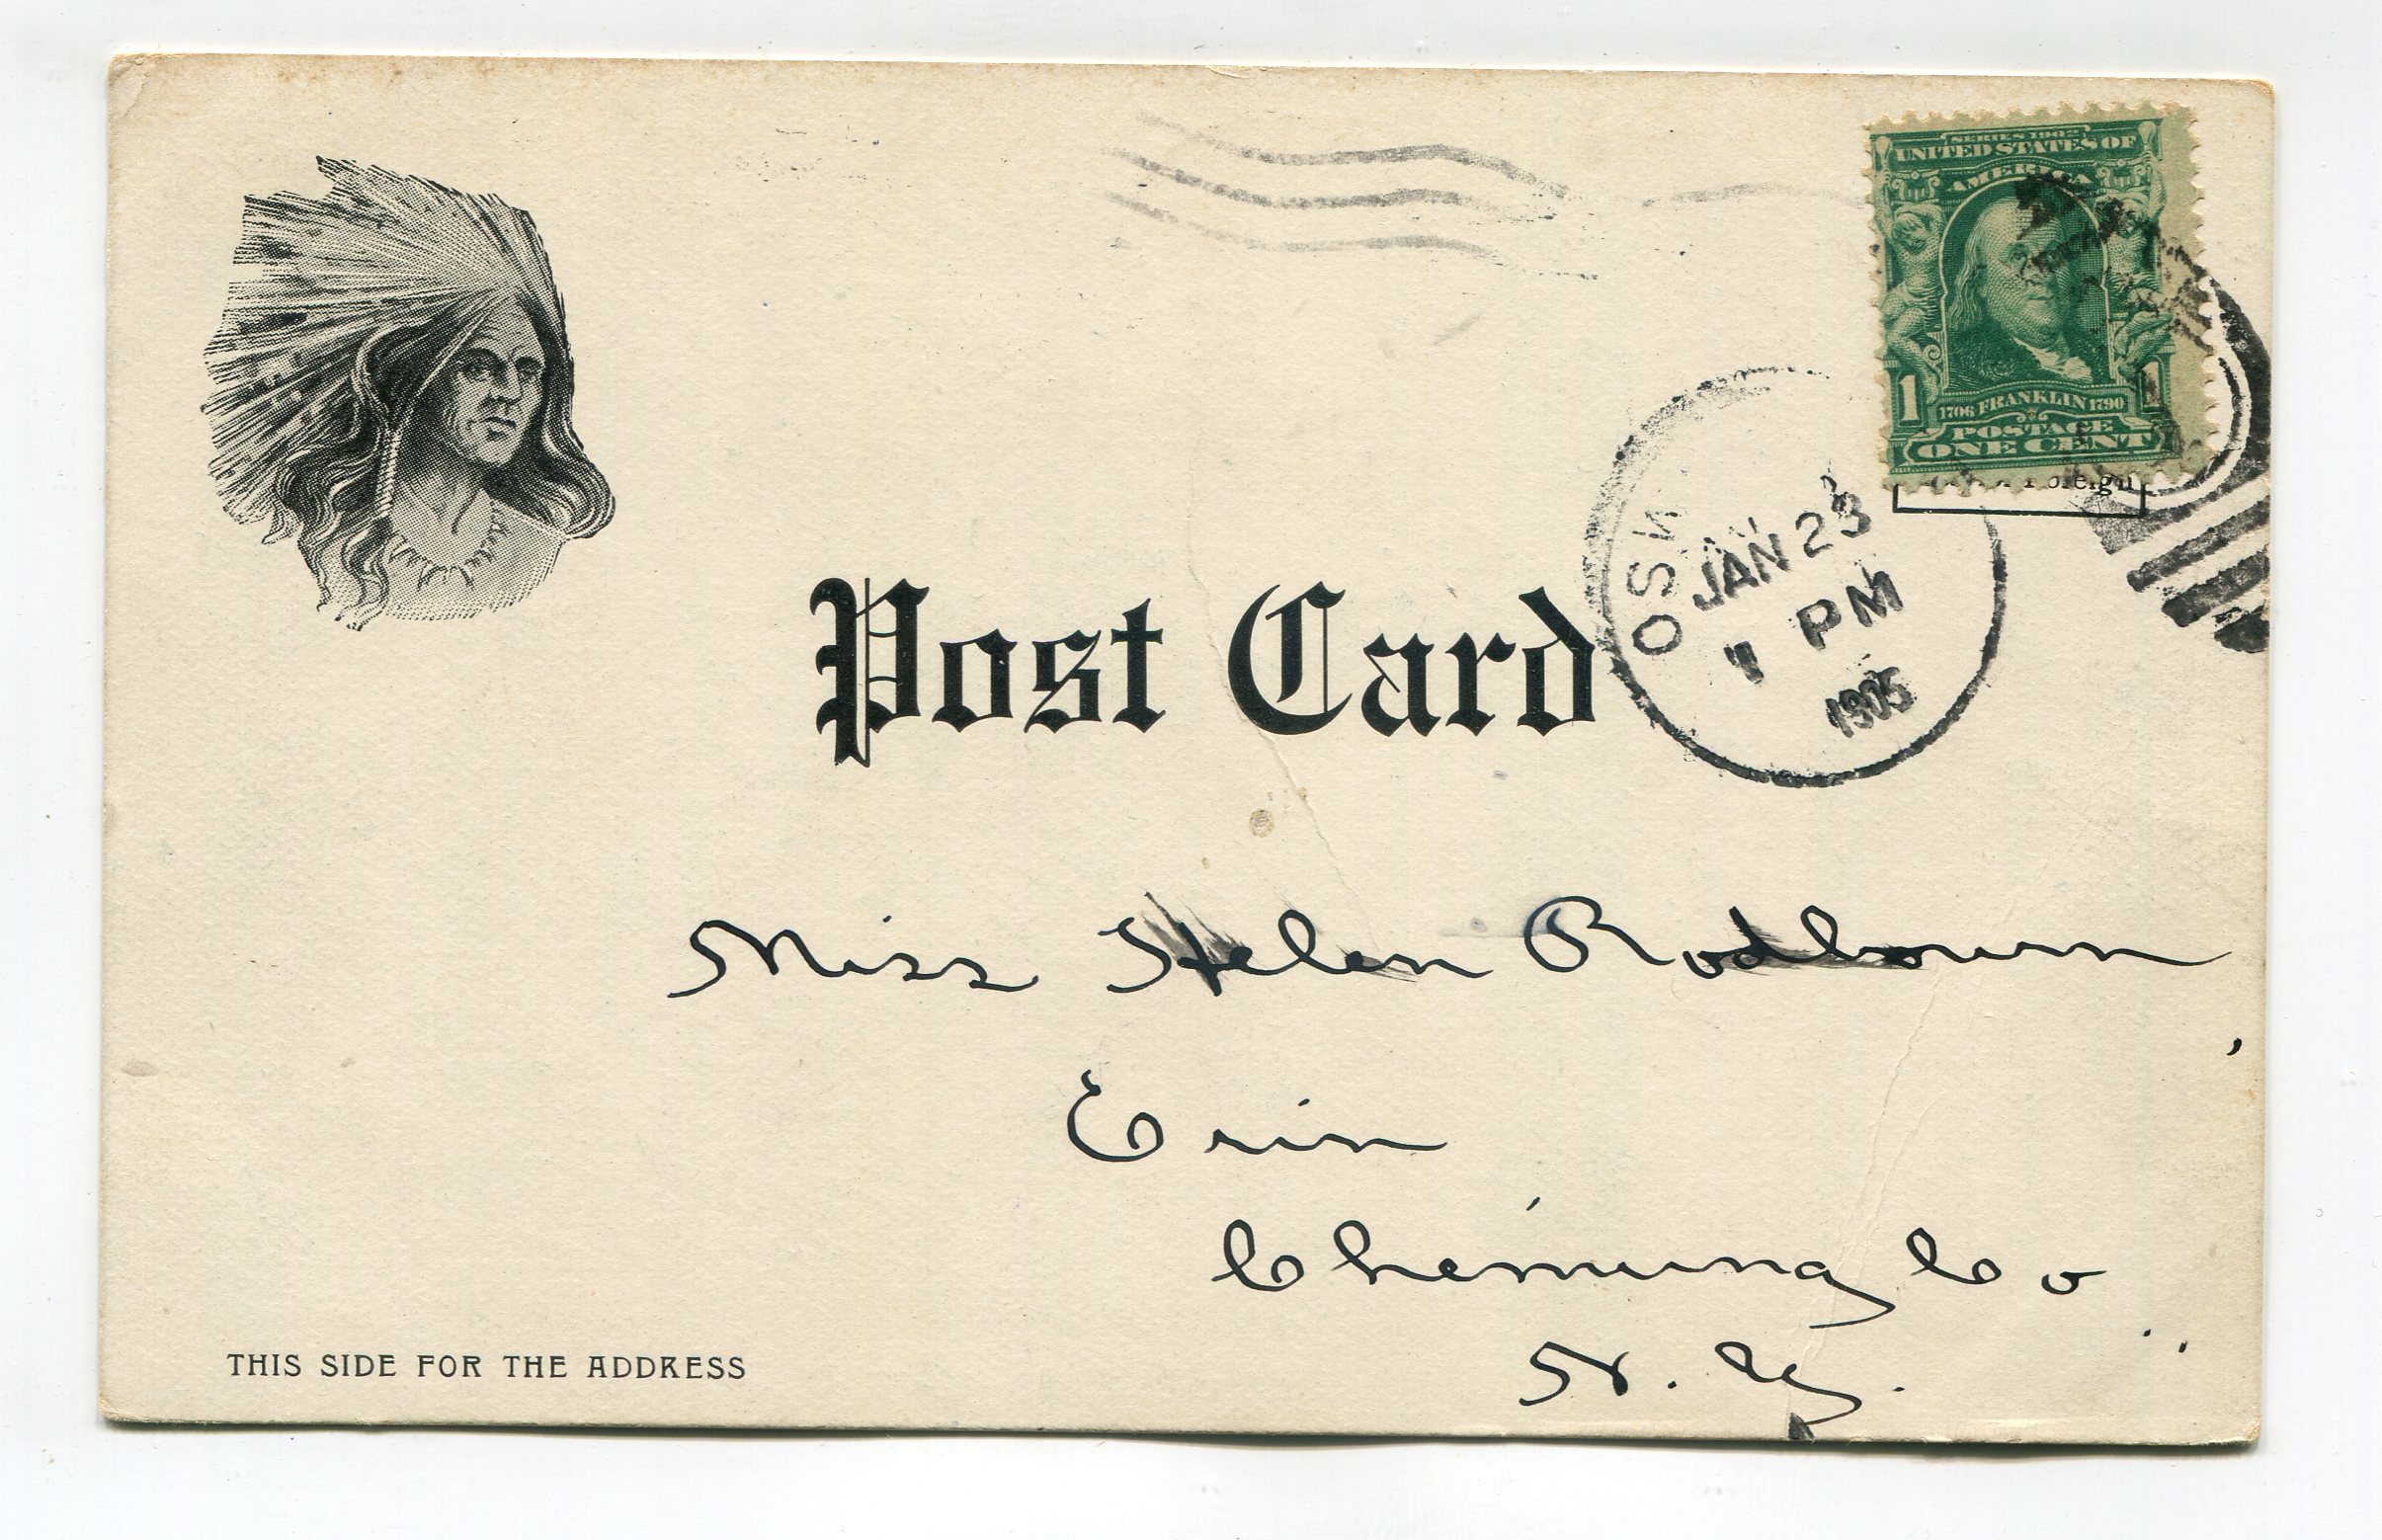 SERIES 1902
UNITED STATES OF
AMERICA
1 1
1706 FRANKLIN 1790
POSTAGE
ONE CENT
Foreign
OSW
JAN 23
PM
1905
Post Card
Miss Helen Rodbourn
Erin
Chemung Co
N. Y.
THIS SIDE FOR THE ADDRESS